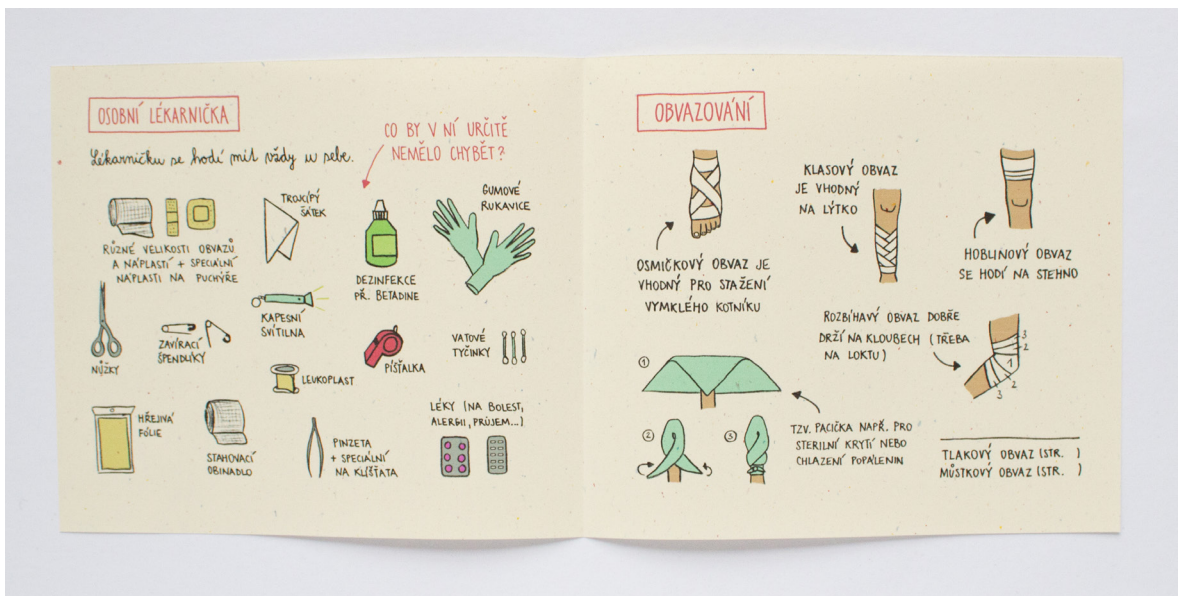 OSOBNÍ LÉKARNIČKA
Lékarničku se hodí mít vždy u sebe.
CO BY V NÍ URČITĚ
NEMĚLO CHYBĚT?
RŮZNÉ VELIKOSTI OBVAZŮ
A NÁPLASTÍ + SPECIÁLNÍ
NÁPLASTI NA PUCHÝŘE
TROJCÍPÝ
ŠÁTEK
DEZINFEKCE
PŘ. BETADINE
GUMOVÉ
RUKAVICE
NŮŽKY
ZAVÍRACÍ
ŠPENDLÍKY
KAPESNÍ
SVÍTILNA
LEUKOPLAST
PÍŠŤALKA
VATOVÉ
TYČINKY
HŘEJIVÁ
FÓLIE
STAHOVACÍ
OBINADLO
PINZETA
+ SPECIÁLNÍ
NA KLÍŠŤATA
LÉKY (NA BOLEST,
ALERGII, PRŮJEM...)
OBVAZOVÁNÍ
OSMIČKOVÝ OBVAZ JE
VHODNÝ PRO STAŽENÍ
VYMKLÉHO KOTNÍKU
KLASOVÝ OBVAZ
JE VHODNÝ
NA LÝTKO
HOBLINOVÝ OBVAZ
SE HODÍ NA STEHNO
ROZBÍHAVÝ OBVAZ DOBŘE
DRŽÍ NA KLOUBECH (TŘEBA
NA LOKTU)
3
2
1
2
3
1
2
3
TZV. PACIČKA NAPŘ. PRO
STERILNÍ KRYTÍ NEBO
CHLAZENÍ POPÁLENIN
TLAKOVÝ OBVAZ (STR. )
MŮSTKOVÝ OBVAZ (STR. )